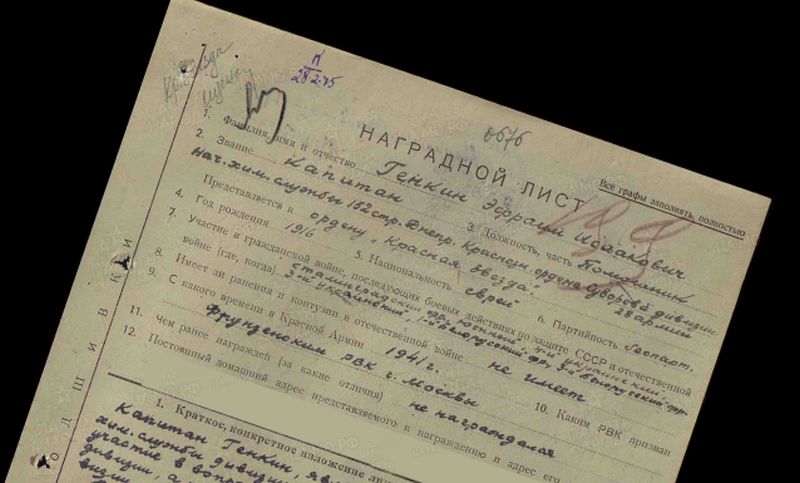 Кр. Звезда
П
28 2.45
0676
НАГРАДНОЙ ЛИСТ
Все графы заполнять полностью
1. Фамилия, имя и отчество Генкин Эфраим Исаакович
2. Звание Капитан 3. Должность, часть Помощник
нач. хим. службы 152 стр. Днепр. Краснозн. ордена Суворова дивизии
28 армии
Представляется к ордену "Красная звезда".
4. Год рождения 1916 5. Национальность еврей 6. Партийность беспарт.
7. Участие в гражданской войне, последующих боевых действиях по защите СССР и отечественной
войне (где, когда) Сталинградский фр., Южный, 4-й Украинский,
3-й Украинский, 1-й Белорусский фр., 3-й Белорусский фр.
8. Имеет ли ранения и контузии в отечественной войне не имеет
9. С какого времени в Красной Армии 1941 г. 10. Каким РВК призван
Фрунзенским РВК г. Москвы
11. Чем ранее награжден (за какие отличия) не награждался
12. Постоянный домашний адрес представляемого к награждению и адрес его
ОДШИВКИ
1. Краткое, конкретное изложение
Капитан Генкин,
хим. службы дивизии
участие в
дивизии, а